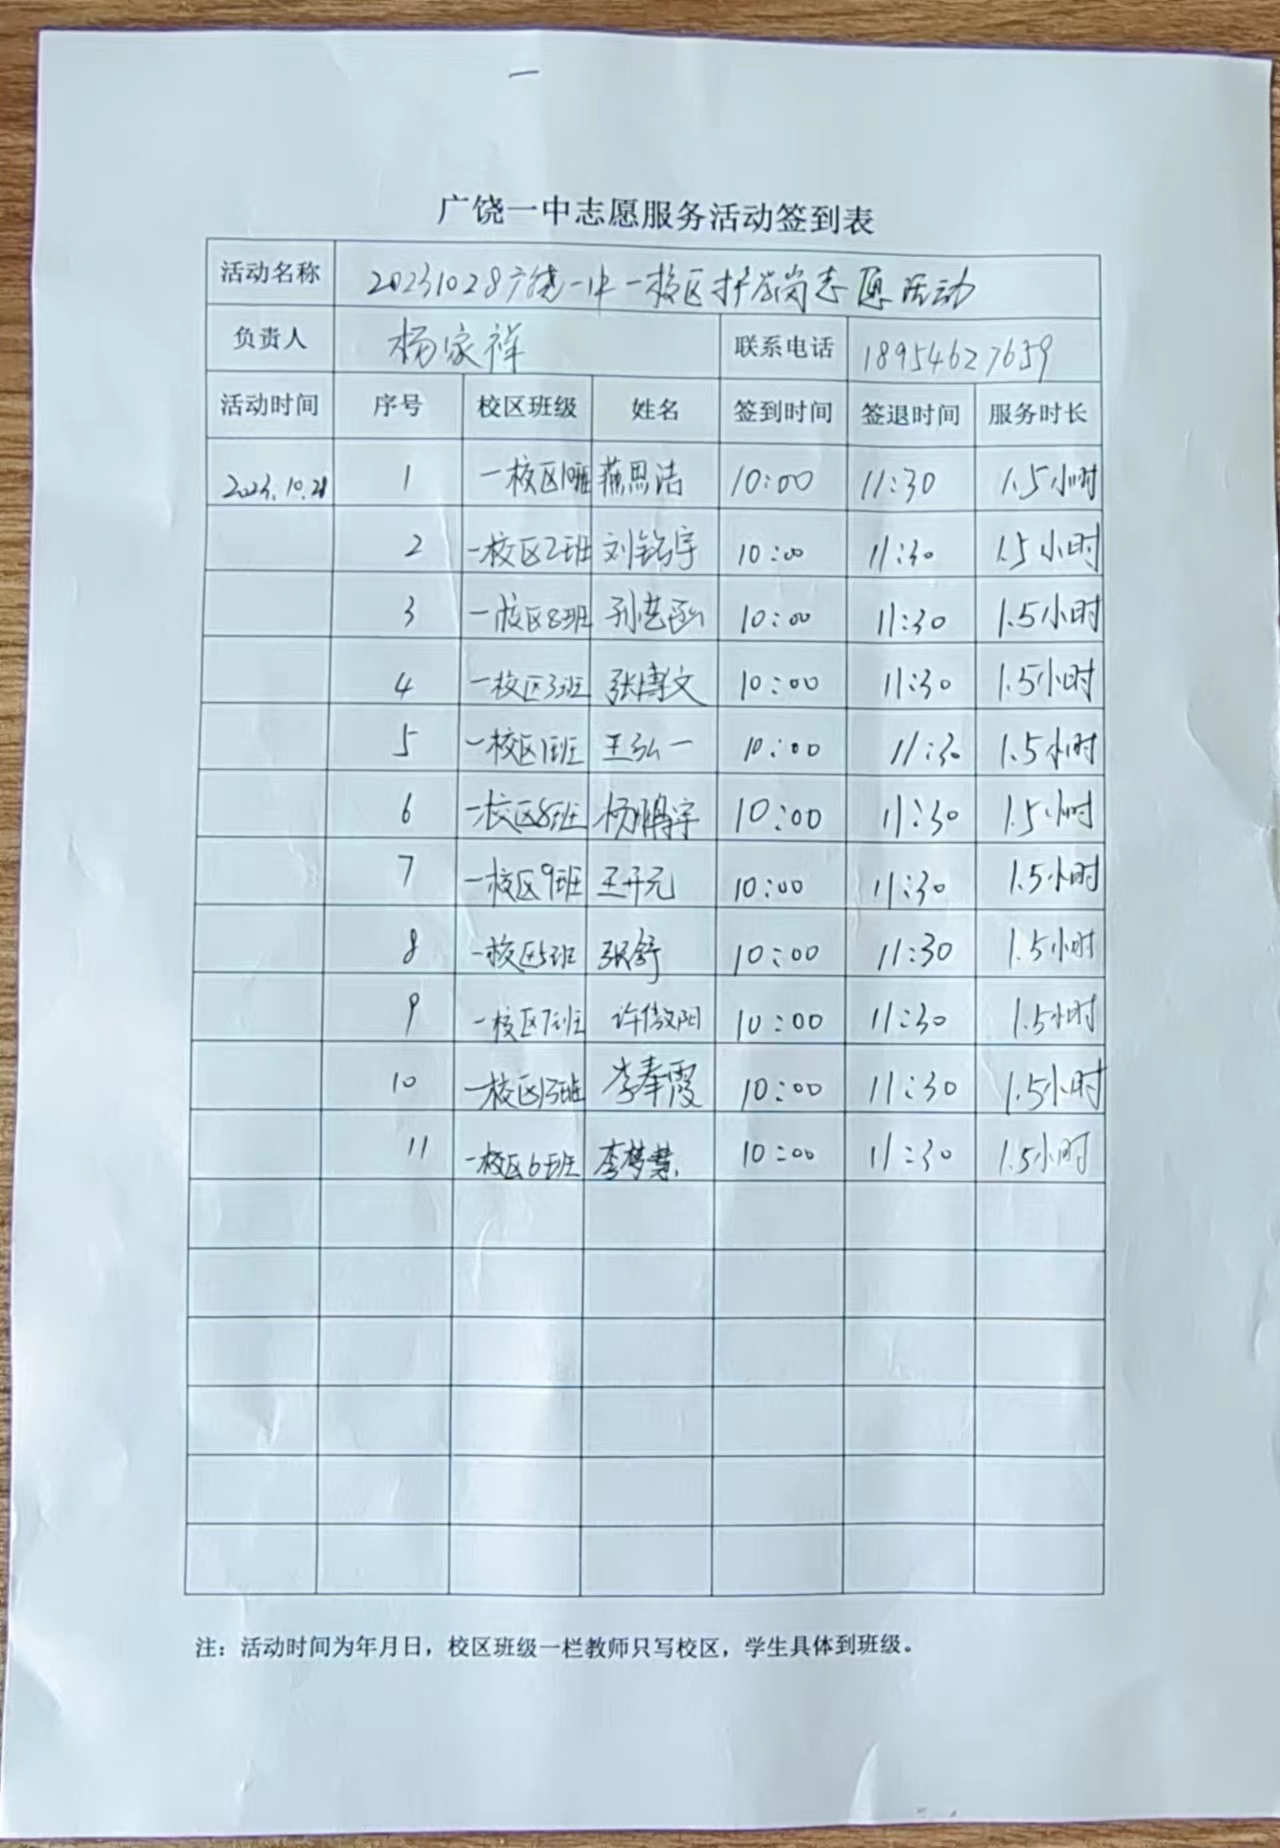 一
广饶一中志愿服务活动签到表
活动名称 20231028广饶一中一校区护学岗志愿活动
负责人 杨家祥 联系电话 18954627659
活动时间 序号 校区班级 姓名 签到时间 签退时间 服务时长
2023.10.28 1 一校区10班 燕思洁 10:00 11:30 1.5小时
2 一校区2班 刘铭宇 10:00 11:30 1.5小时
3 一校区8班 孙艺函 10:00 11:30 1.5小时
4 一校区3班 张博文 10:00 11:30 1.5小时
5 一校区1班 王弘一 10:00 11:30 1.5小时
6 一校区8班 杨鹏宇 10:00 11:30 1.5小时
7 一校区9班 王开元 10:00 11:30 1.5小时
8 一校区5班 张舒 10:00 11:30 1.5小时
9 一校区7班 许微阳 10:00 11:30 1.5小时
10 一校区13班 李奉霞 10:00 11:30 1.5小时
11 一校区6班 李梦慧 10:00 11:30 1.5小时
注：活动时间为年月日，校区班级一栏教师只写校区，学生具体到班级。